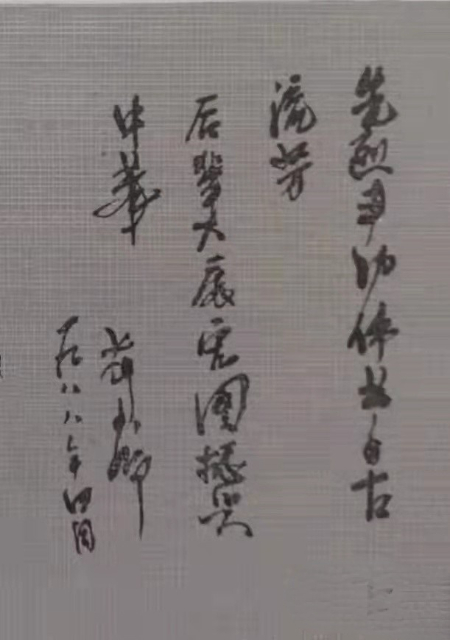 先烈丰功伟业古
流芳
后辈大展宏图振兴
中华
一九八八年四月